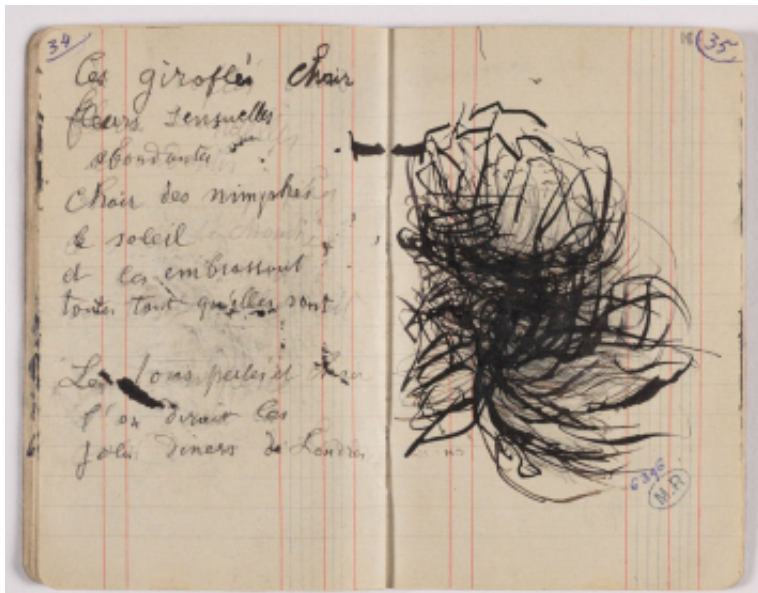 34
Ces giroflés chair
fleurs sensuelles
abondantes
chair des nimphes
le soleil
et les embrassant
toutes tant qu'elles sont
Les tons perles et
l'on dirait les
jolis diners de Londres
35
6396
M.R